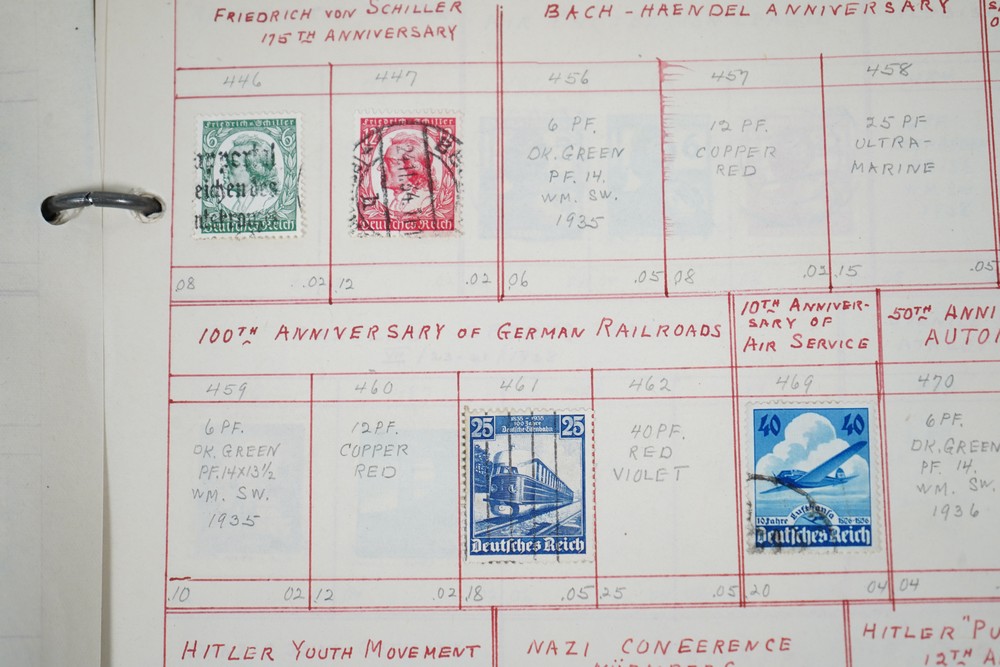 FRIEDRICH VON SCHILLER
175TH ANNIVERSARY
BACH-HAENDEL ANNIVERSARY
446
447
456
457
458
6
Friedrich v. Schiller
Deutsches Reich
12
Friedrich v. Schiller
Deutsches Reich
6 PF.
DK. GREEN
PF. 14.
WM. SW.
1935
12 PF.
COPPER
RED
25 PF
ULTRA-
MARINE
.08 .02
.12 .02
.06 .05
.08 .02
.15 .05
100TH ANNIVERSARY OF GERMAN RAILROADS
10TH ANNIVER-
SARY OF
AIR SERVICE
50TH ANNI
AUTO
459
460
461
462
469
470
6 PF.
DK. GREEN
PF. 14X13½
WM. SW.
1935
12 PF.
COPPER
RED
25 1835-1935 25
100 Jahre
Deutsche Eisenbahn
Deutsches Reich
40 PF.
RED
VIOLET
40 40
10 Jahre Lufthansa 1926-1936
Deutsches Reich
6 PF.
DK. GREEN
PF. 14.
WM. SW.
1936
.10 02
.12 .02
.18 .05
.25 .05
.20 04
.04
HITLER YOUTH MOVEMENT
NAZI CONFERENCE
NÜRNBERG
HITLER "PU
12TH A